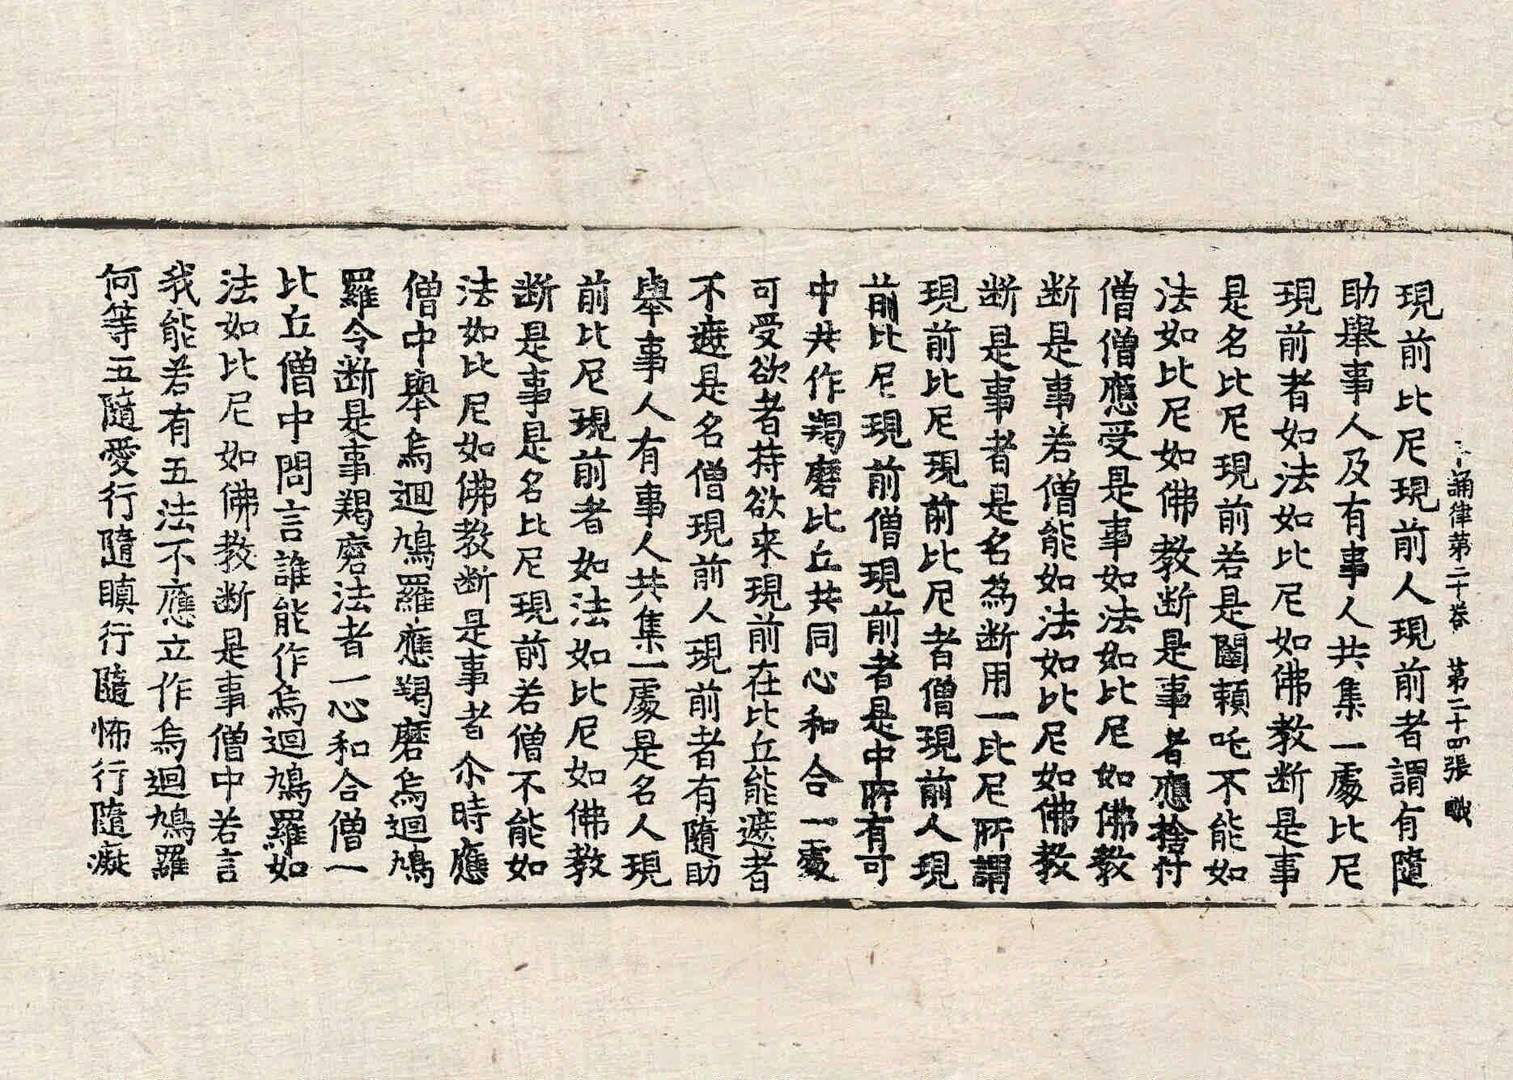 十誦律第二十卷　第二十四張　職
現前比尼現前人現前者謂有隨
助舉事人及有事人共集一處比尼
現前者如法如比尼如佛教断是事
是名比尼現前若是闥賴吒不能如
法如比尼如佛教断是事者應捨付
僧僧應受是事如法如比尼如佛教
断是事若僧能如法如比尼如佛教
断是事者是名為断用一比尼所謂
現前比尼現前比尼者僧現前人現
前比尼現前僧現前者是中所有可
中共作羯磨比丘共同心和合一處
可受欲者持欲来現前在比丘能遮者
不遮是名僧現前人現前者有隨助
舉事人有事人共集一處是名人現
前比尼現前者如法如比尼如佛教
断是事是名比尼現前若僧不能如
法如比尼如佛教断是事者尒時應
僧中舉烏迴鳩羅應羯磨烏迴鳩
羅令断是事羯磨法者一心和合僧一
比丘僧中問言誰能作烏迴鳩羅如
法如比尼如佛教断是事僧中若言
我能若有五法不應立作烏迴鳩羅
何等五隨愛行隨瞋行隨怖行隨癡